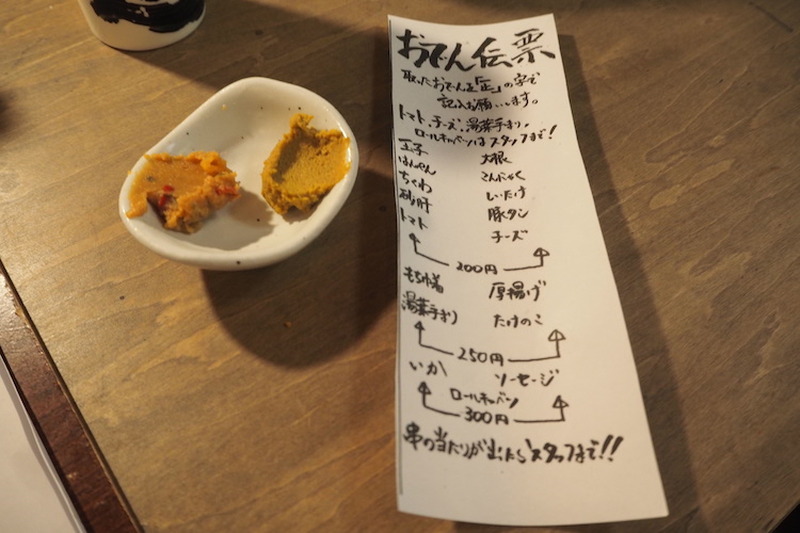 おでん伝票
取ったおでんを「正」の字で
記入お願いします。
トマト、チーズ、湯葉手まり、
ロールキャベツはスタッフまで!
玉子 大根
はんぺん こんにゃく
ちくわ しいたけ
砂肝 豚タン
トマト チーズ
200円
もち巾着 厚揚げ
湯葉手まり たけのこ
250円
いか ソーセージ
ロールキャベツ
300円
串の当たりが出たらスタッフまで!!